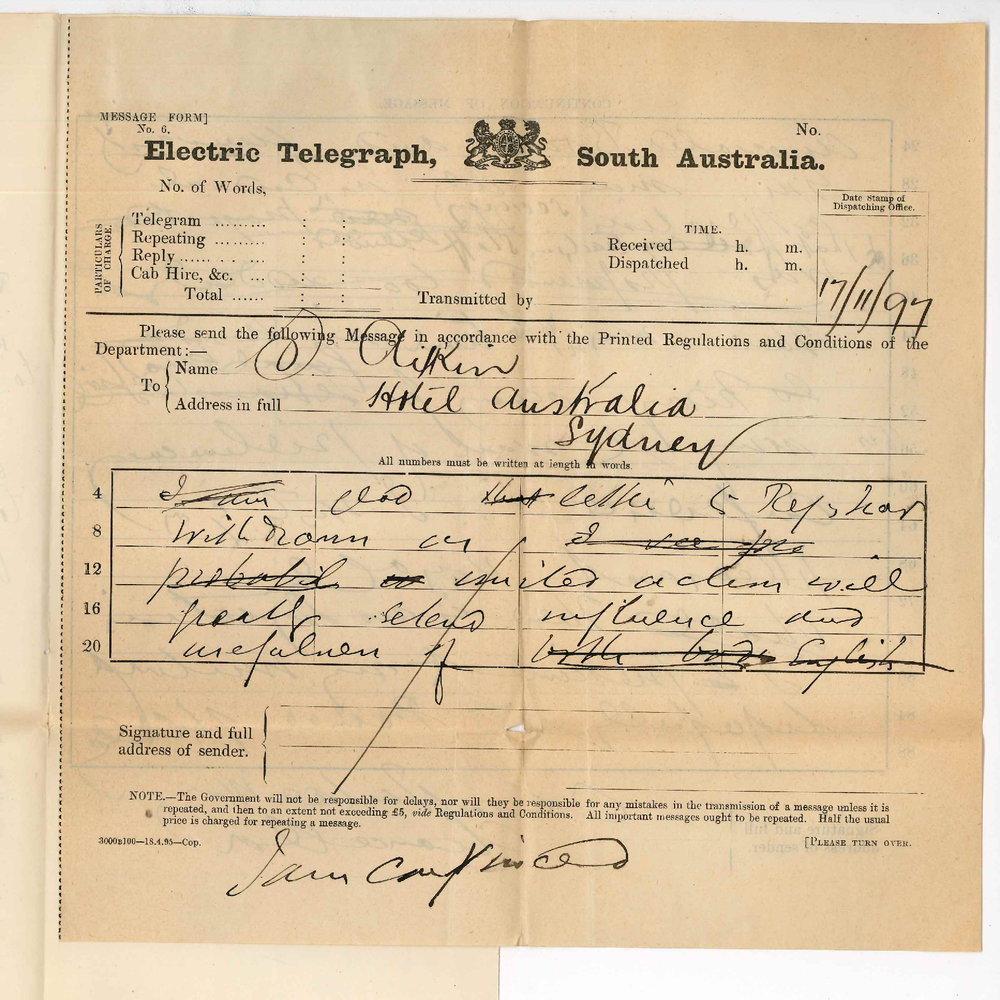 MESSAGE FORM]
No. 6.
No.
Electric Telegraph, South Australia.
No. of Words,
Date Stamp of
Dispatching Office.
PARTICULARS
OF CHARGE.
Telegram .........
Repeating .........
Reply...........
Cab Hire, &c. ...
Total ......
TIME.
Received h. m.
Dispatched h. m.
Transmitted by
17/11/97
Please send the following Message in accordance with the Printed Regulations and Conditions of the
Department:—
To
Name D Aitkin
Address in full Hotel Australia
Sydney
All numbers must be written at length in words.
4 I am glad that letter to Registrar
8 withdrawn as I
12 probable united action will
16 greatly extend influence and
20 usefulness of both bodies English
Signature and full
address of sender.
NOTE.—The Government will not be responsible for delays, nor will they be responsible for any mistakes in the transmission of a message unless it is
repeated, and then to an extent not exceeding £5, vide Regulations and Conditions. All important messages ought to be repeated. Half the usual
price is charged for repeating a message.
3000B100—18.4.95—Cop.
[PLEASE TURN OVER.
I am convinced